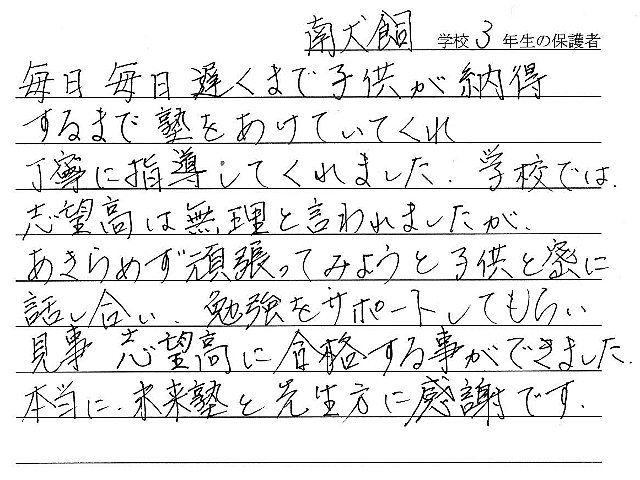 南犬飼 学校 3 年生の保護者
毎日毎日遅くまで子供が納得
するまで塾をあけていてくれ
丁寧に指導してくれました。学校では、
志望高は無理と言われましたが、
あきらめず頑張ってみようと子供と密に
話し合い、勉強をサポートしてもらい
見事 志望高に合格する事ができました。
本当に、未来塾と先生方に感謝です。